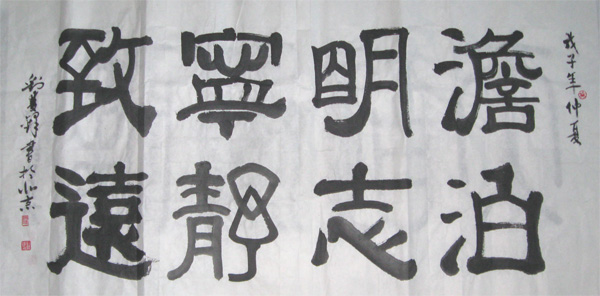 戊子年仲夏
澹泊
明志
寧靜
致遠
書於北京